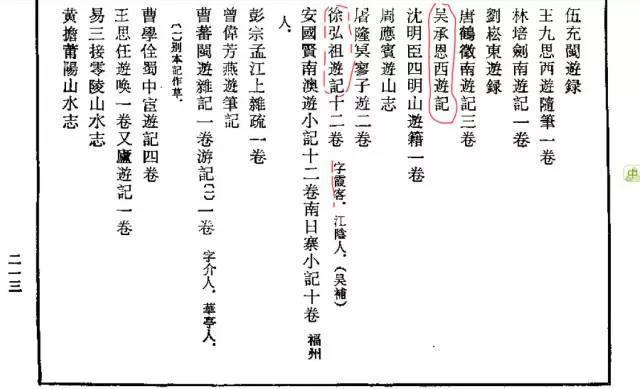 伍充閩遊録
王九思西遊隨筆一卷
林培劍南遊記一卷
劉崧東遊録
唐鶴徵南遊記三卷
吴承恩西遊記
沈明臣四明山遊籍一卷
周應賓遊山志
屠隆冥寥子遊二卷
徐弘祖遊記十二卷 字霞客，江陰人。（吴補）
安國賢南澳遊小記十二卷南日寨小記十卷 福州
人。
彭宗孟江上雜疏一卷
曾偉芳燕遊筆記
曹蕃閩遊雜記一卷游記〔一〕一卷 字介人，華亭人。
〔一〕别本記作草。
曹學佺蜀中宦遊記四卷
王思任遊喚一卷又廬遊記一卷
易三接零陵山水志
黄擔莆陽山水志
二一三
中